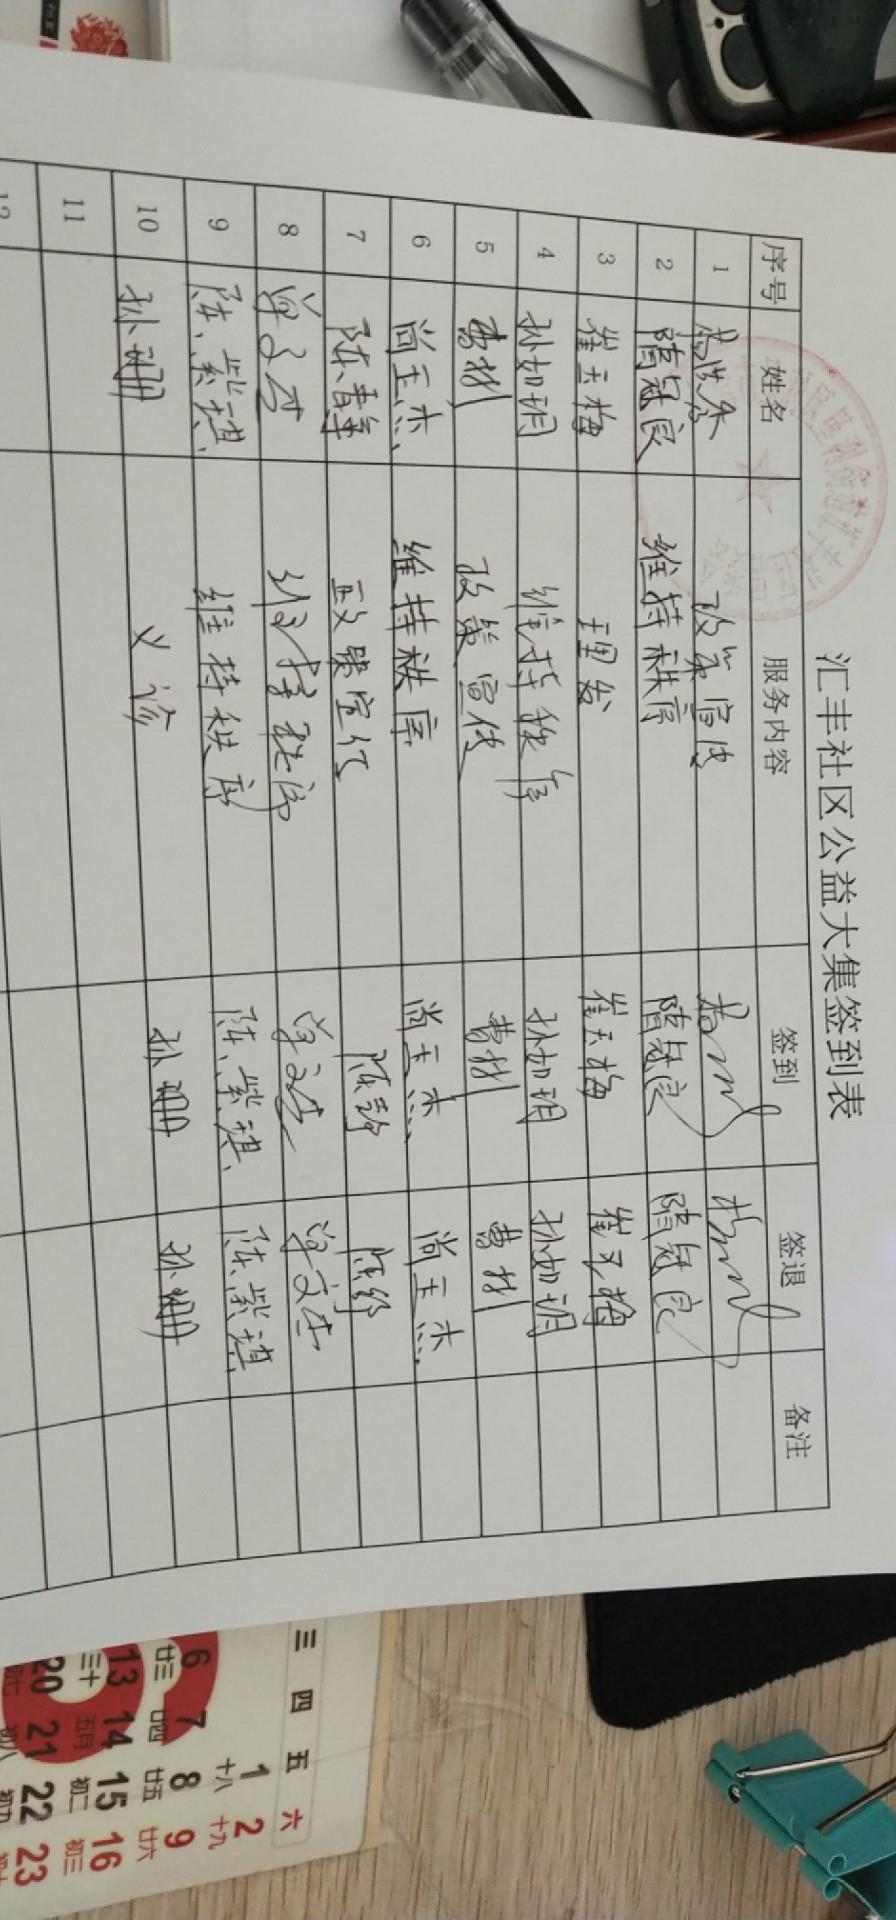 汇丰社区公益大集签到表
序号 姓名 服务内容 签到 签退 备注
1 政策宣传
2 隋冠良 维持秩序 隋冠良 隋冠良
3 崔玉梅 理发 崔玉梅 崔玉梅
4 孙如玥 维持秩序 孙如玥 孙如玥
5 曹彬 政策宣传 曹彬 曹彬
6 尚玉杰 维持秩序 尚玉杰 尚玉杰
7 政策宣传
8 单文杰 维持秩序 单文杰 单文杰
9 陈紫琪 维持秩序 陈紫琪 陈紫琪
10 孙珊 义诊 孙珊 孙珊
11
12
三 四 五 六
1 2
十八 十九
6 7 8 9
廿三 廿四 廿五 廿六
13 14 15 16
三十 五月 初二 初三
20 21 22 23
初八 初九